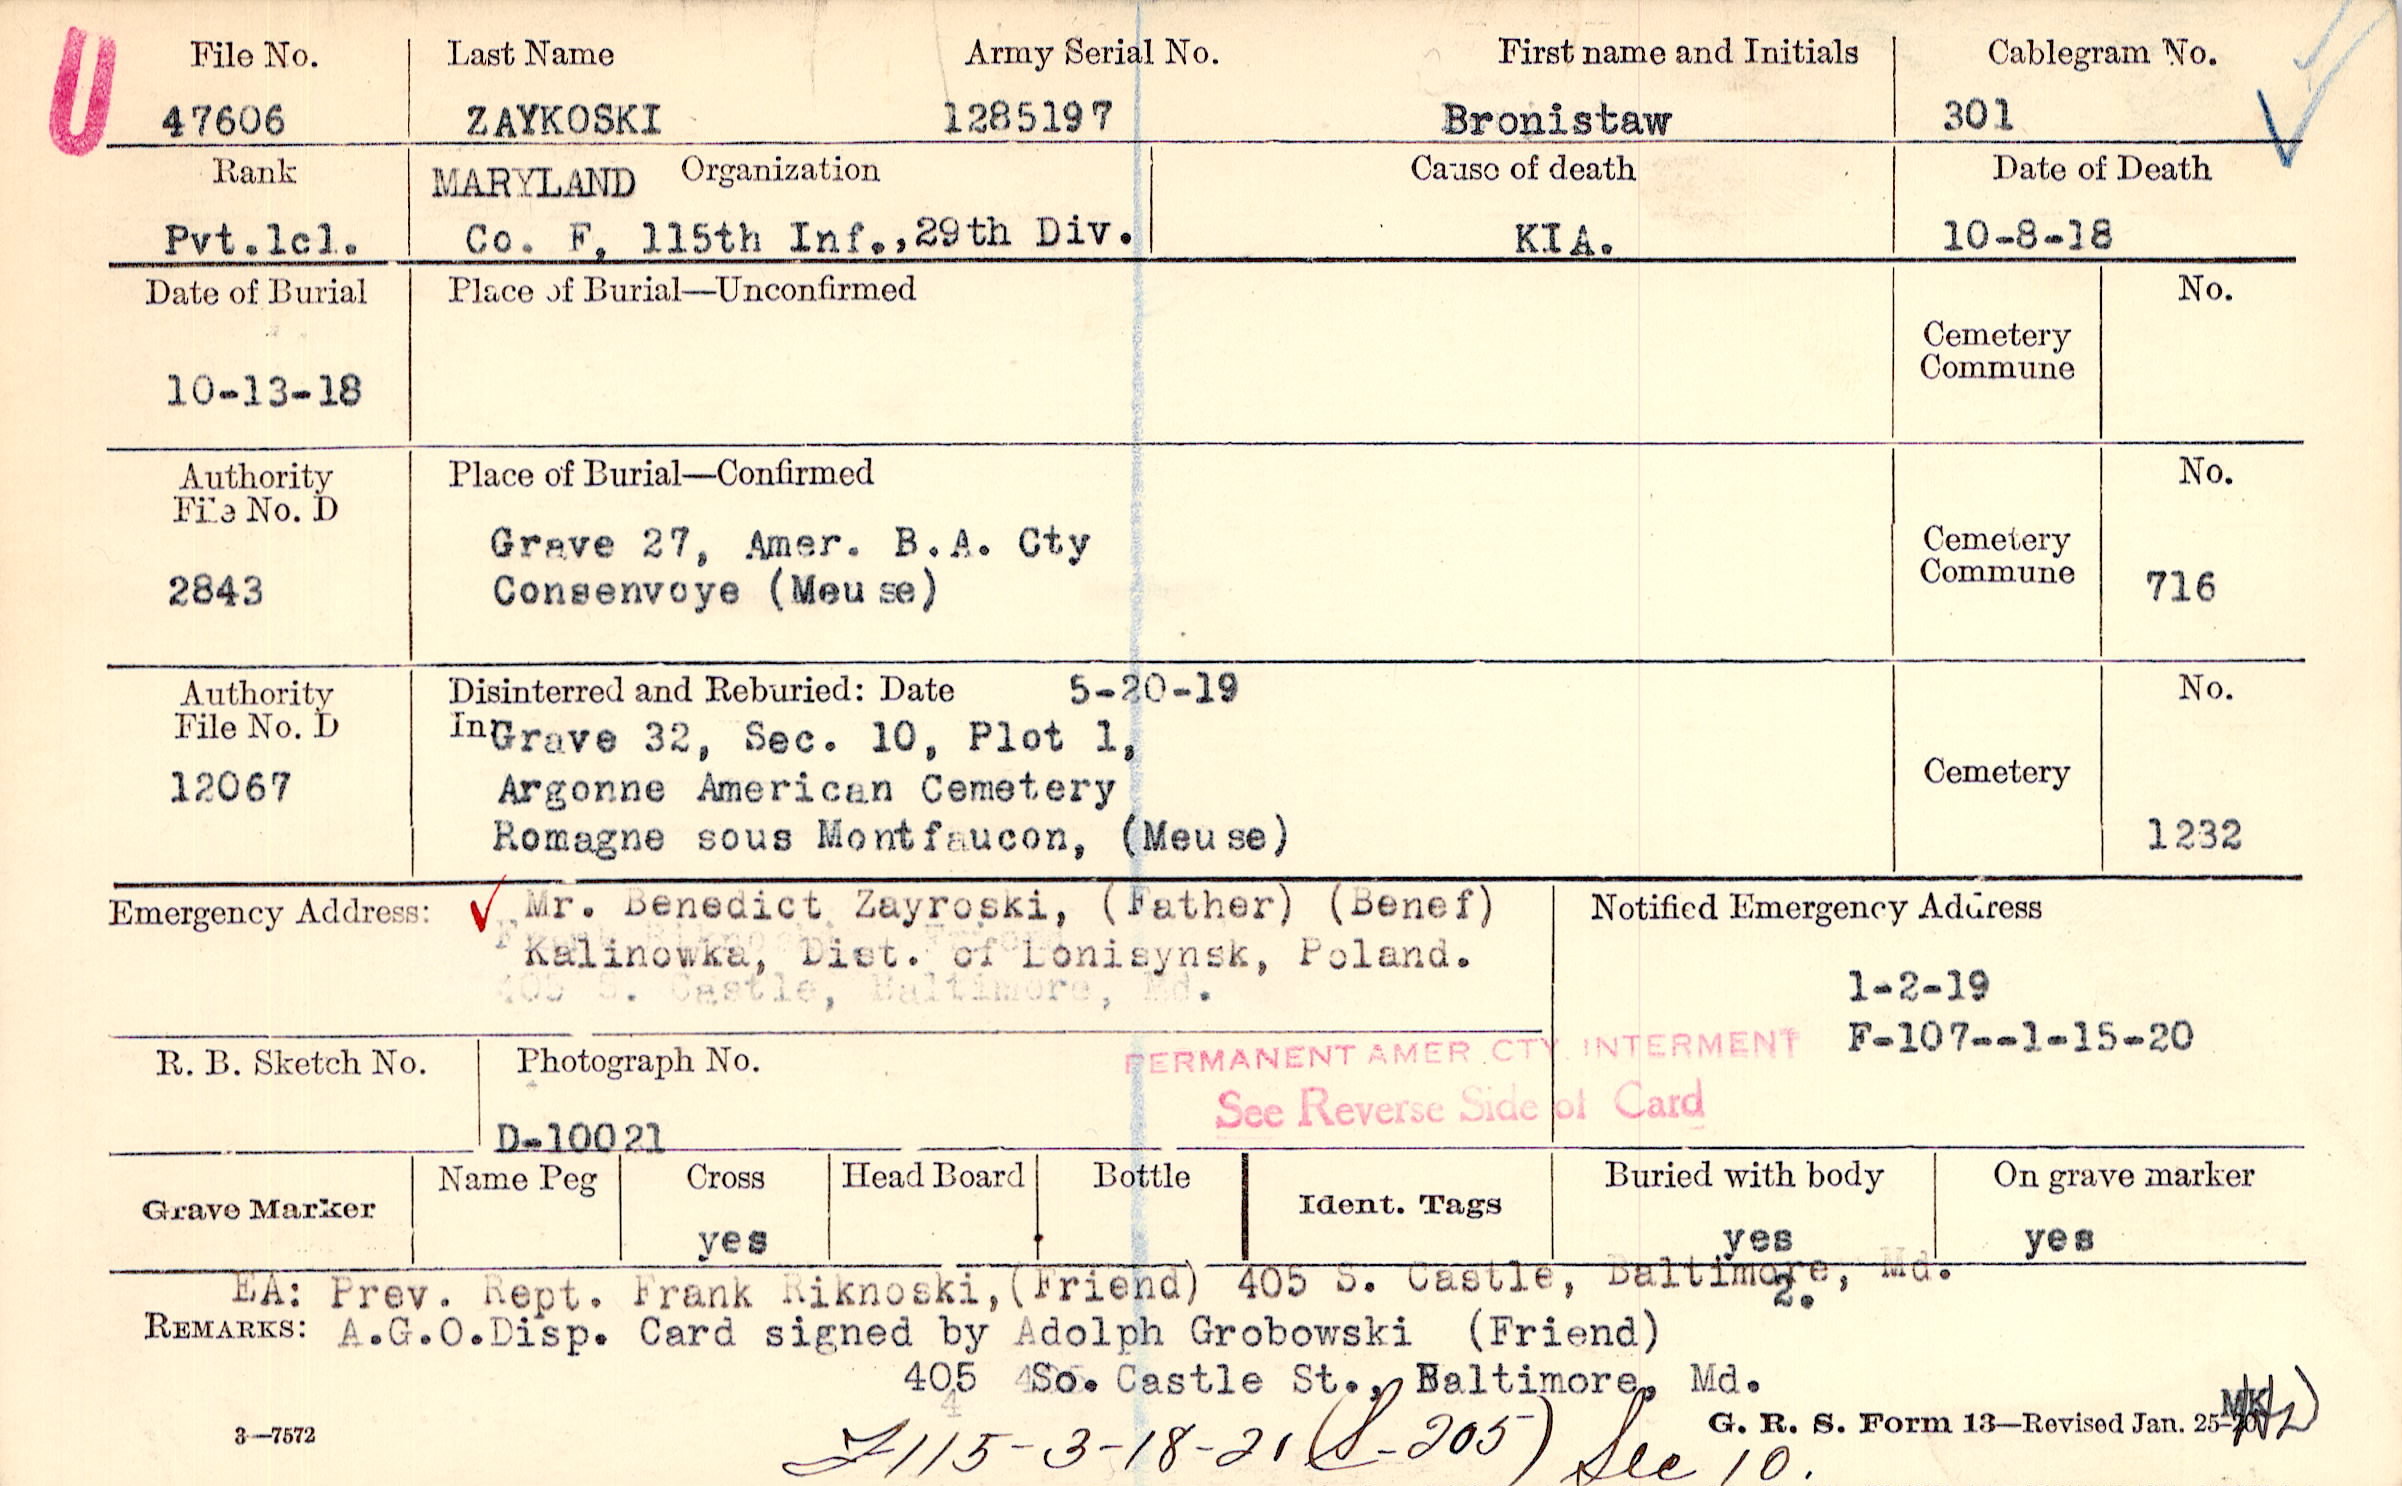 U
File No. Last Name Army Serial No. First name and Initials Cablegram No.
47606 ZAYKOSKI 1285197 Bronistaw 301
Rank MARYLAND Organization Cause of death Date of Death
Pvt.1cl. Co. F, 115th Inf.,29th Div. KIA. 10-8-18
Date of Burial Place of Burial—Unconfirmed No.
Cemetery
Commune
10-13-18
Authority Place of Burial—Confirmed No.
File No. D
Grave 27, Amer. B.A. Cty Cemetery
2843 Consenvoye (Meuse) Commune 716
Authority Disinterred and Reburied: Date 5-20-19 No.
File No. D In Grave 32, Sec. 10, Plot 1,
12067 Argonne American Cemetery Cemetery
Romagne sous Montfaucon, (Meuse) 1232
Emergency Address: Mr. Benedict Zayroski, (Father) (Benef) Notified Emergency Address
Kalinowka, Dist. of Lonisynsk, Poland.
405 S. Castle, Baltimore, Md.
1-2-19
F-107--1-15-20
R. B. Sketch No. Photograph No. PERMANENT AMER. CTY. INTERMENT
See Reverse Side of Card
D-10021
Grave Marker Name Peg Cross Head Board Bottle Ident. Tags Buried with body On grave marker
yes yes yes
EA: Prev. Rept. Frank Riknoski,(Friend) 405 S. Castle, Baltimore, Md.
2.
REMARKS: A.G.O.Disp. Card signed by Adolph Grobowski (Friend)
405 So. Castle St., Baltimore, Md.
4
3—7572 G. R. S. Form 13—Revised Jan. 25-20
MK
115-3-18-21 (S-205) Sec 10.